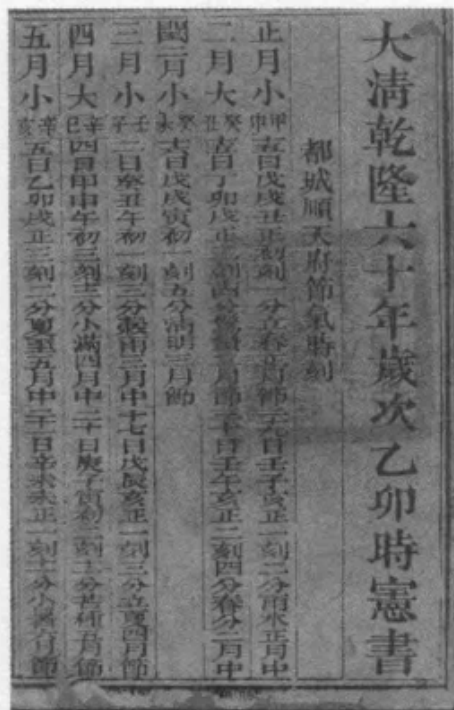 大清乾隆六十年歲次乙卯時憲書
都城順天府節氣時刻
正月小 甲申 十五日戊戌丑正初刻一分立春正月節二十九日壬子亥正一刻二分雨水正月中
二月大 癸丑 十五日丁卯戌正二刻四分驚蟄二月節三十日壬午亥正二刻四分春分二月中
閏二月小 癸未 十六日戊戌寅初一刻五分清明三月節
三月小 壬子 二日癸丑午初一刻三分穀雨三月中十七日戊辰亥正一刻三分立夏四月節
四月大 辛巳 四日甲申午初三刻分小滿四月中二十日庚子寅初三刻十二分芒種五月節
五月小 辛亥 五日乙卯戌正三刻二分夏至五月中二十一日辛未未正一刻十一分小暑六月節